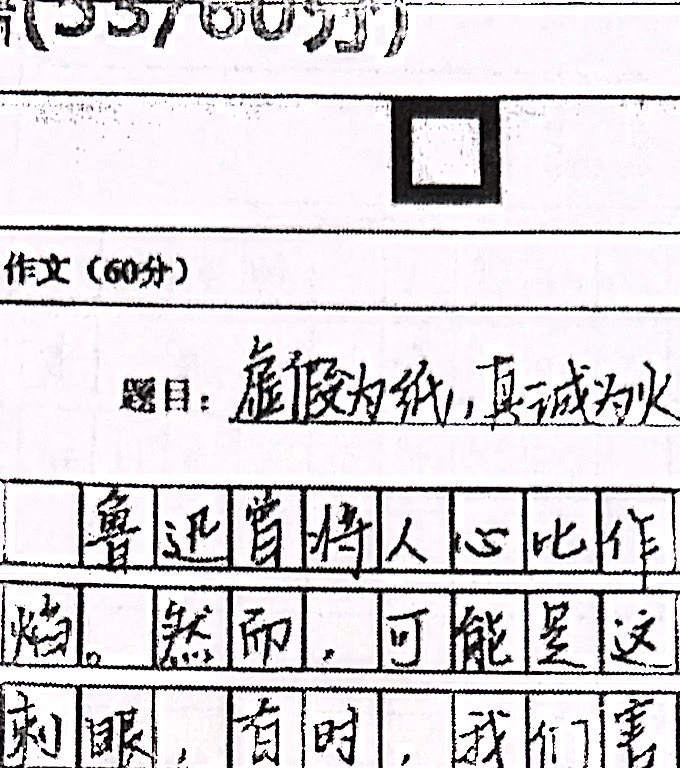 (55/60分)
作文（60分）
题目：虚假为纸，真诚为火
鲁迅曾将人心比作
焰。然而，可能是这
刺眼，有时，我们害